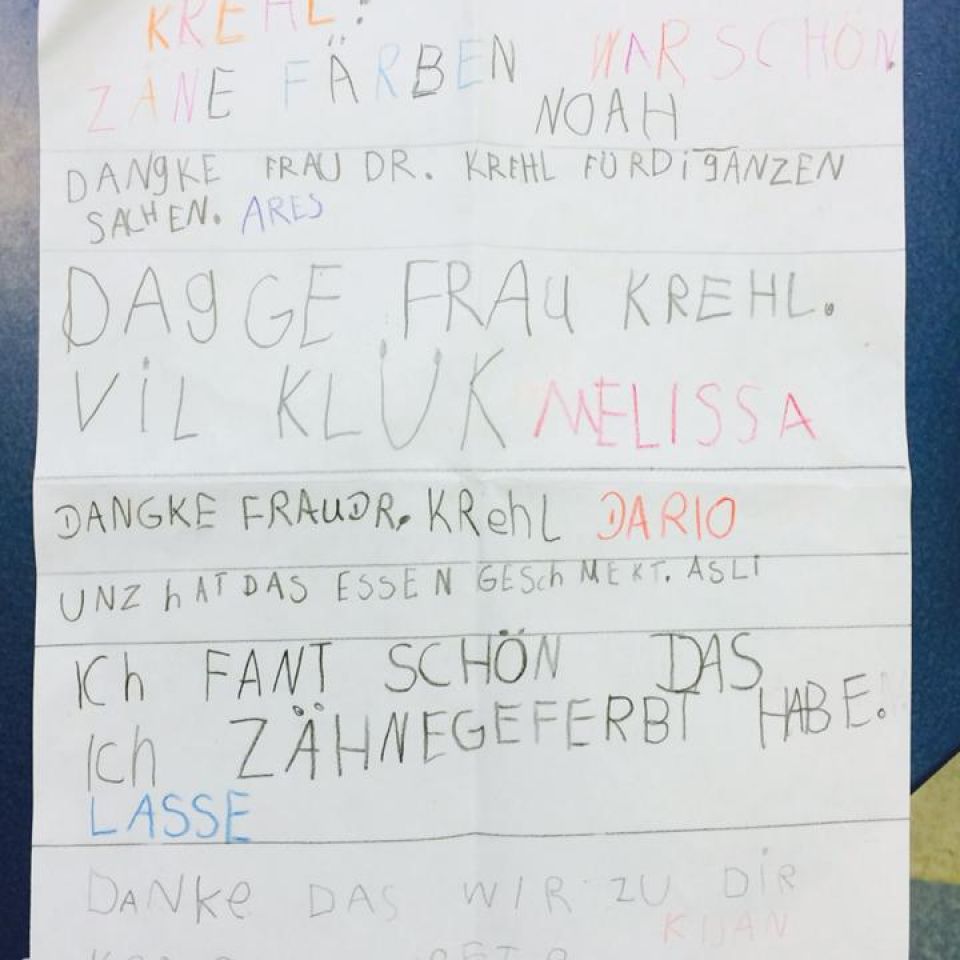 KREHL.
ZÄNE FÄRBEN WAR SCHÖN.
NOAH
DANgKE FRAU DR. KREHL FÜR Di gANZEN
SACHEN. ARES
DAgGE FRAU KREHL.
ViL KLÜK MELISSA
DANGKE FRAUDR. KRehL DARIO
UNZ hAT DAS ESSEN GESchMEKT. ASLi
ICh FANT SCHÖN DAS
ICh ZÄHNEGEFERBT HABE.
LASSE
DANKe DAS WIR ZU DiR
KIJAN